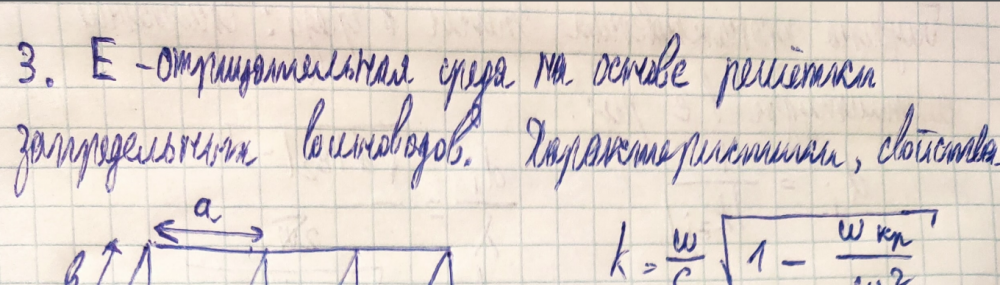 3. E - отрицательная среда на основе решётки
запредельных волноводов. Характеристики, свойства
a
b
k = ω/c √1 - ωкр/ω²